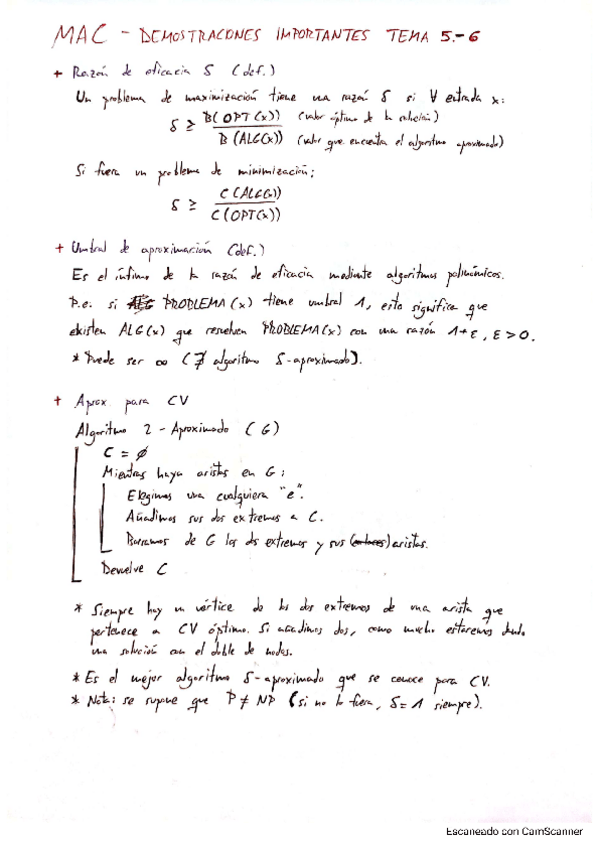 MAC - DEMOSTRACONES IMPORTANTES TEMA 5.-6
+ Razón de eficacia δ (def.)
Un problema de maximización tiene una razón δ si ∀ entrada x:
δ ≥ B(OPT(x)) / B(ALG(x)) (valor óptimo de la solución) (valor que encuentra el algoritmo aproximado)
Si fuera un problema de minimización:
δ ≥ C(ALG(x)) / C(OPT(x))
+ Umbral de aproximación (def.)
Es el ínfimo de la razón de eficacia mediante algoritmos polinómicos.
P.e. si PROBLEMA(x) tiene umbral 1, esto significa que
existen ALG(x) que resuelven PROBLEMA(x) con una razón 1+ε, ε>0.
* Puede ser ∞ (∄ algoritmo δ-aproximado).
+ Aprox para CV
Algoritmo 2-Aproximado (G)
C = ∅
Mientras haya aristas en G:
Elegimos una cualquiera "e".
Añadimos sus dos extremos a C.
Borramos de G los ds extremos y sus aristas.
Devuelve C
* Siempre hay un vértice de los dos extremos de una arista que
pertenece a CV óptimo. Si añadimos dos, como mucho estaremos dando
una solución con el doble de nodos.
* Es el mejor algoritmo δ-aproximado que se conoce para CV.
* Nota: se supone que P ≠ NP (si no lo fuera, δ=1 siempre).
Escaneado con CamScanner